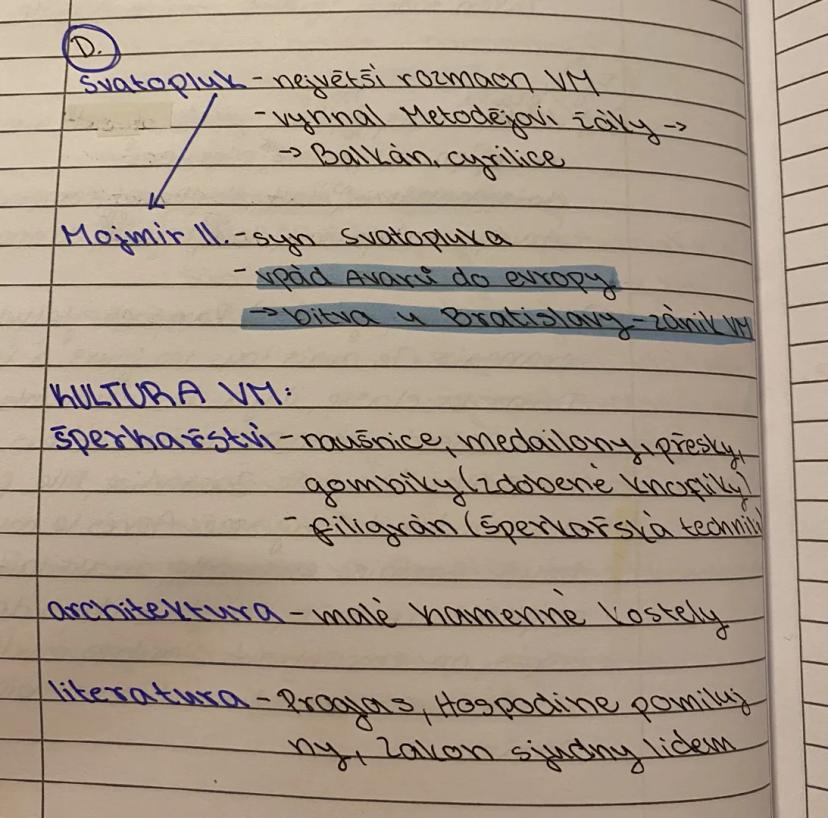 D.
Svatopluk - největší rozmach VM
- vyhnal Metodějovi žáky →
→ Balkán, cyrilice
Mojmír II. - syn Svatopluka
- vpád Avarů do evropy
→ bitva u Bratislavy - zánik VM
KULTURA VM:
šperkařství - naušnice, medailony, přesky,
gombíky (zdobené knoflíky)
- filigrán (šperkařská technik
architektura - malé kamenné kostely
literatura - Proglas, Hospodine pomiluj
ny, Zakon sjudny lidem